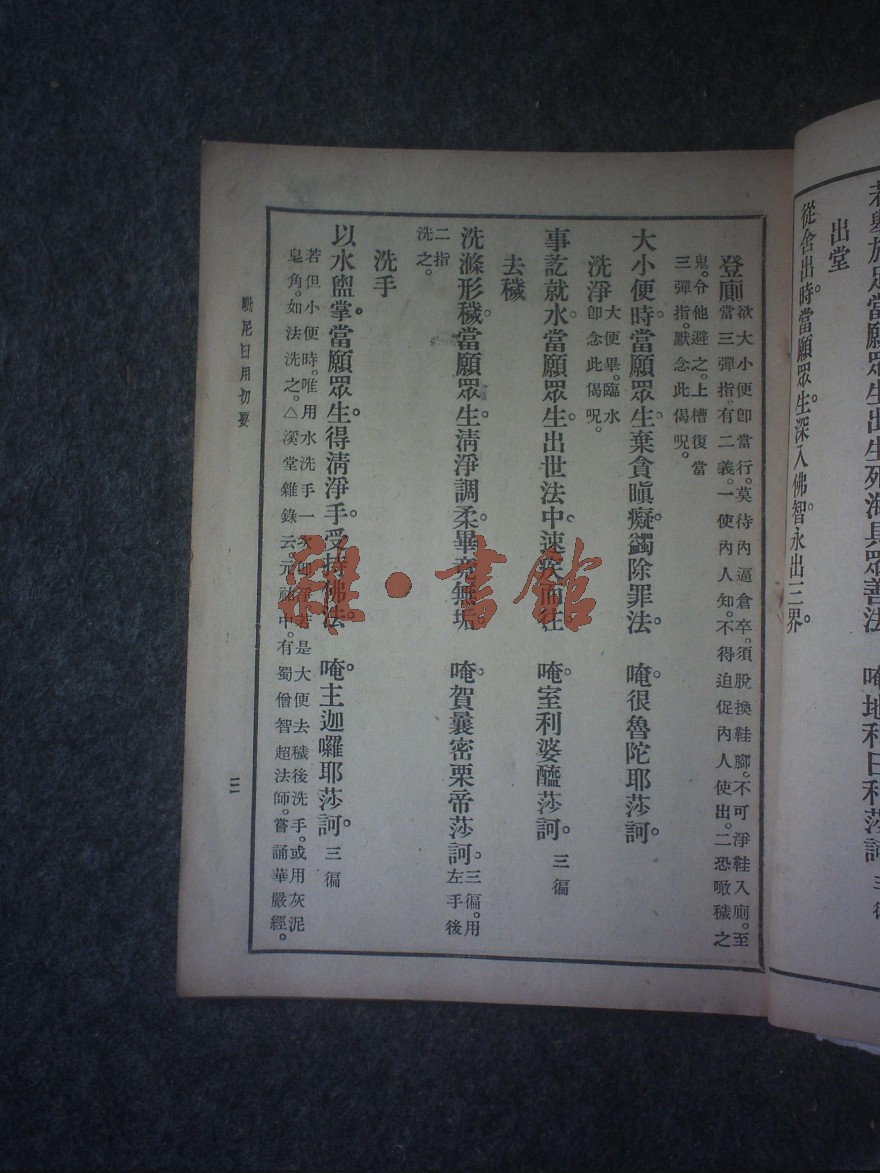 若舉於足當願眾生出生死海具眾善法　唵地利日利莎訶 三徧
出堂
從舍出時。當願眾生。深入佛智。永出三界。
登廁
欲大小便卽當行。莫待內逼倉卒。須脫換鞋腳。不可淨鞋入廁。至
當三彈指。有二義。一使內人知。不得迫促內人使出。二恐噉穢之
鬼。令他避之。上槽復當
三彈指。默念此偈呪。
大小便時。當願眾生。棄貪瞋癡。蠲除罪法。　唵。很魯陀耶莎訶。
洗淨
大便畢。臨水
卽念此偈呪。
事訖就水。當願眾生。出世法中。速疾而往。　唵。室利婆醯莎訶。 三徧
去穢
洗滌形穢。當願眾生。清淨調柔。畢竟無垢。　唵。賀曩密栗帝莎訶。 三徧。用
左手後
二指
洗之。
洗手
以水盥掌。當願眾生。得清淨手。受持佛法。　唵。主迦囉耶莎訶。 三徧
若但小便時。唯用水洗手一次卽淨。若是大便去穢後洗手。或用灰泥
皂角。如法洗之。△溪堂雜錄云。元祐中。有蜀僧智超法師。嘗誦華嚴經。
毗尼日用切要
三
雜·書館